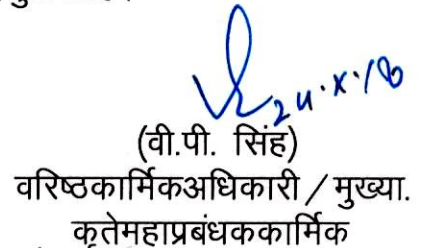 24.X.18
(वी.पी. सिंह)
वरिष्ठकार्मिकअधिकारी / मुख्या.
कृतेमहाप्रबंधककार्मिक